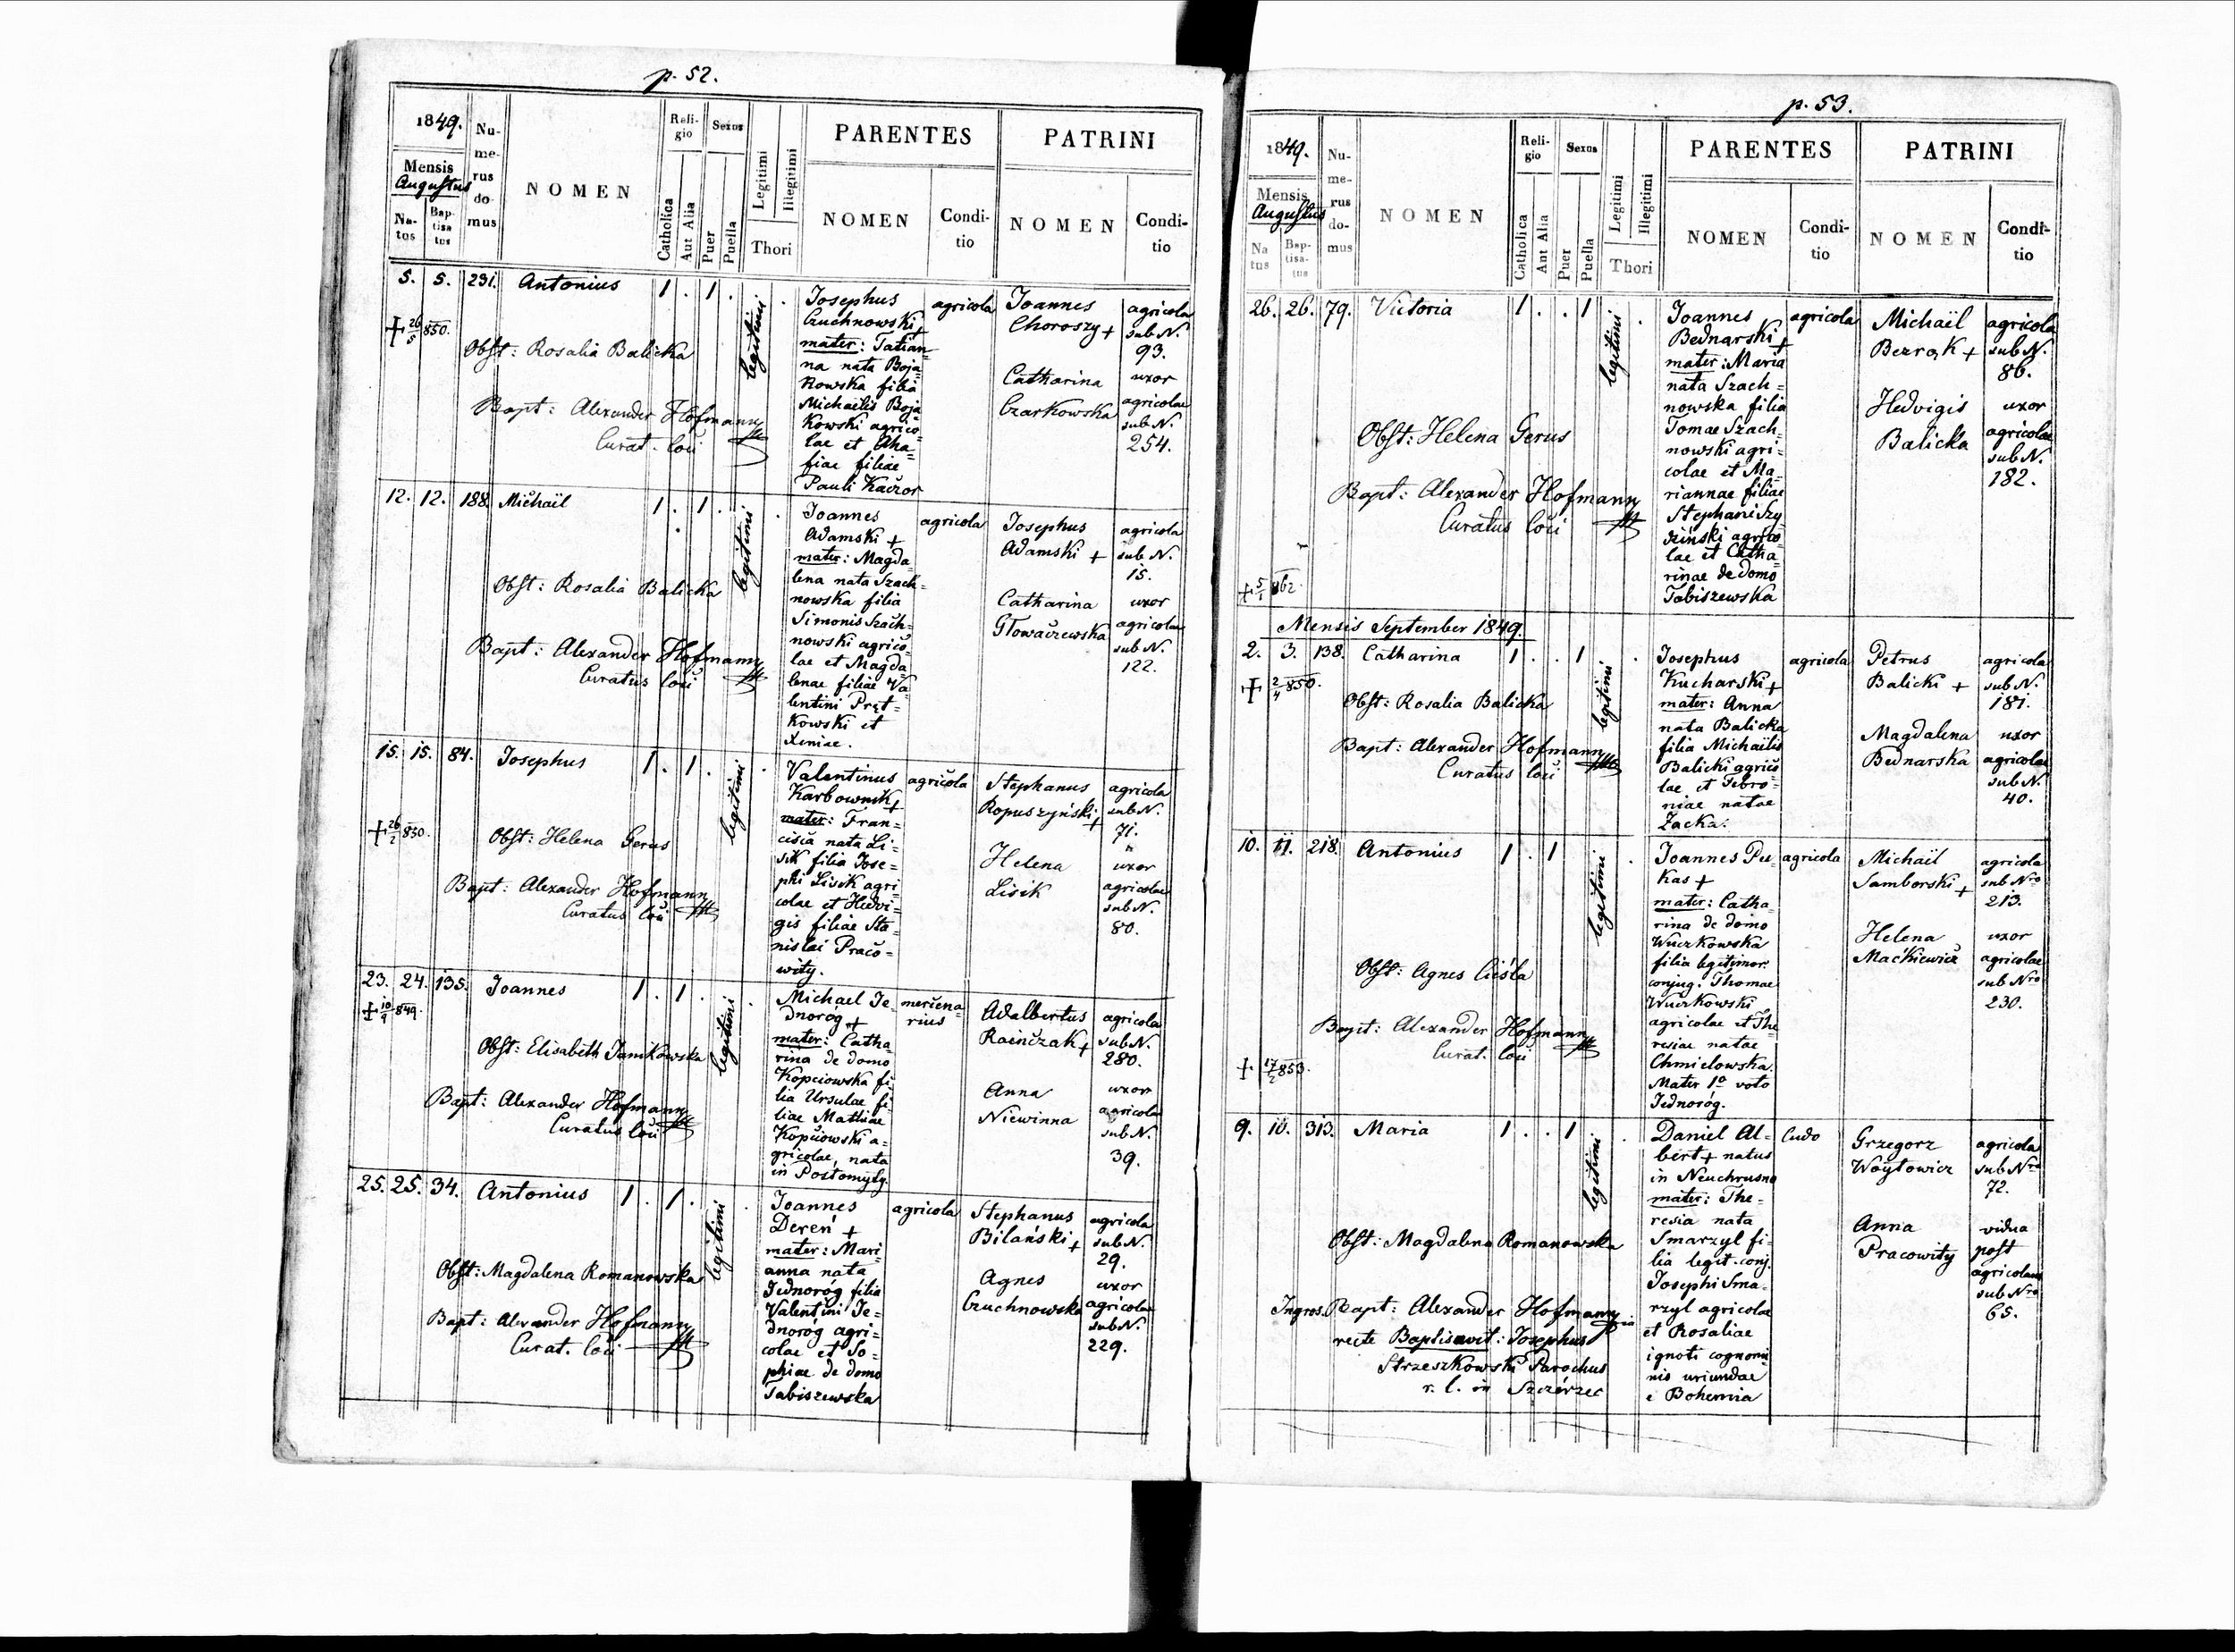 p. 52.
1849.
Mensis
Augustus
Natos
Baptisatus
Numerus domus
NOMEN
Religio
Catholica
Aut Alia
Sexus
Puer
Puella
Legitimi
Illegitimi
Thori
PARENTES
NOMEN
Conditio
PATRINI
NOMEN
Conditio
5. 5. 231. Antonius 1 . 1 .
+ 26/5 850.
Obst: Rosalia Balicka
Bapt: Alexander Hofmann
Curat. loci
legitimi
Josephus
Czuchnowski +
mater: Tatian-
na nata Boja-
kowska filia
Michaelis Boja
kowski agrico-
lae et Aha-
fiae filiae
Pauli Kaczor
agricola
Joannes
Choroszy +
agricola
sub N.
93.
Catharina
Czarkowska
uxor
agricolae
sub N.
254.
12. 12. 188. Michaïl 1 . 1 .
Obst: Rosalia Balicka
Bapt: Alexander Hofmann
Curatus loci
legitimi
Joannes
Adamski +
mater: Magda-
lena nata Szach=
nowska filia
Simonis Szach=
nowski agrico-
lae et Magda-
lenae filiae Va-
lentini Pręt=
kowski et
Xeniae.
agricola
Josephus
Adamski +
agricola
sub N.
15.
Catharina
Głowaczewska
uxor
agricolae
sub N.
122.
15. 15. 84. Josephus 1 . 1 .
+ 26/2 850.
Obst: Helena Gerus
Bapt: Alexander Hofmann
Curatus loci
legitimi
Valentinus
Karbownik +
mater: Fran=
cisca nata Li-
sik filia Jose-
phi Lisik agri
colae et Hedvi-
gis filiae Sta-
nislai Praco=
wity.
agricola
Stephanus
Ropuszyński +
agricola
sub N.
71.
Helena
Lisik
uxor
agricolae
sub N.
80.
23. 24. 135. Joannes 1 . 1 .
+ 10/9 849.
Obst: Elisabeth Janikowska
Bapt: Alexander Hofmann
Curatus loci
legitimi
Michael Je-
dnoróg +
mater: Catha-
rina de domo
Kopciowska fi-
lia Ursulae fi-
liae Mathiae
Kopciowski a-
gricolae, nata
in Postomyty
mercena-
rius
Adalbertus
Rainczak +
agricola
sub N.
280.
Anna
Niewinna
uxor
agricolae
sub N.
39.
25. 25. 34. Antonius 1 . 1 .
Obst: Magdalena Romanowska
Bapt: Alexander Hofmann
Curat. loci
legitimi
Joannes
Dereń +
mater: Mari
anna nata
Jednoróg filia
Valentini Je=
dnoróg agri=
colae et So=
phiae de domo
Tabiszewska
agricola
Stephanus
Bilański +
agricola
sub N.
29.
Agnes
Czuchnowska
uxor
agricolae
sub N.
229.
p. 53.
1849.
Mensis
Augustus
Natus
Baptisatus
Numerus domus
NOMEN
Religio
Catholica
Aut Alia
Sexus
Puer
Puella
Legitimi
Illegitimi
Thori
PARENTES
NOMEN
Conditio
PATRINI
NOMEN
Conditio
26. 26. 79. Victoria 1 . . 1
Obst: Helena Gerus
Bapt: Alexander Hofmann
Curatus loci
+ 5/1 862.
legitimi
Joannes
Bednarski +
mater: Maria
nata Szach=
nowska filia
Tomae Szach-
nowski agri=
colae et Ma-
riannae filiae
Stephani Szy
dziński agrico-
lae et Catha-
rinae de domo
Tabiszewska
agricola
Michaël
Bezrąk +
agricola
sub N.
86.
Hedvigis
Balicka
uxor
agricolae
sub N.
182.
Mensis September 1849.
2. 3. 138. Catharina 1 . . 1
+ 2/4 850.
Obst: Rosalia Balicka
Bapt: Alexander Hofmann
Curatus loci
legitimi
Josephus
Kucharski +
mater: Anna
nata Balicka
filia Michaïlis
Balicki agrico-
lae et Febro-
niae natae
Żacka.
agricola
Petrus
Balicki +
agricola
sub N.
181.
Magdalena
Bednarska
uxor
agricolae
sub N.
40.
10. 11. 218. Antonius 1 . 1
Obst: Agnes Cieśla
Bapt: Alexander Hofmann
Curat. loci
+ 17/2 853.
legitimi
Joannes Pu-
kas +
mater: Catha-
rina de domo
Wuczkowska
filia legitimor.
conjug. Thomae
Wuczkowski
agricolae et The
resiae natae
Chmielowska.
Mater 1o voto
Jednoróg.
agricola
Michaïl
Samborski +
agricola
sub Nro
213.
Helena
Mackiewicz
uxor
agricolae
sub Nro
230.
9. 10. 313. Maria 1 . . 1
Obst: Magdalena Romanowska
Ingros. Bapt: Alexander Hofmann
recte Baptisavit: Josephus
Strzeszkowski Parochus
r. l. in Szczérzec
legitimi
Daniel Al-
bert + natus
in Neuchrusno
mater: The-
resia nata
Smarzyl fi-
lia legit. conj.
Josephi Sma-
rzyl agricolae
et Rosaliae
ignoti cognomi
nis uriundae
e Bohemia
ludo
Grzegorz
Woytowicz
agricola
sub Nro
72.
Anna
Pracowity
vidua
post
agricolam
sub Nro
65.